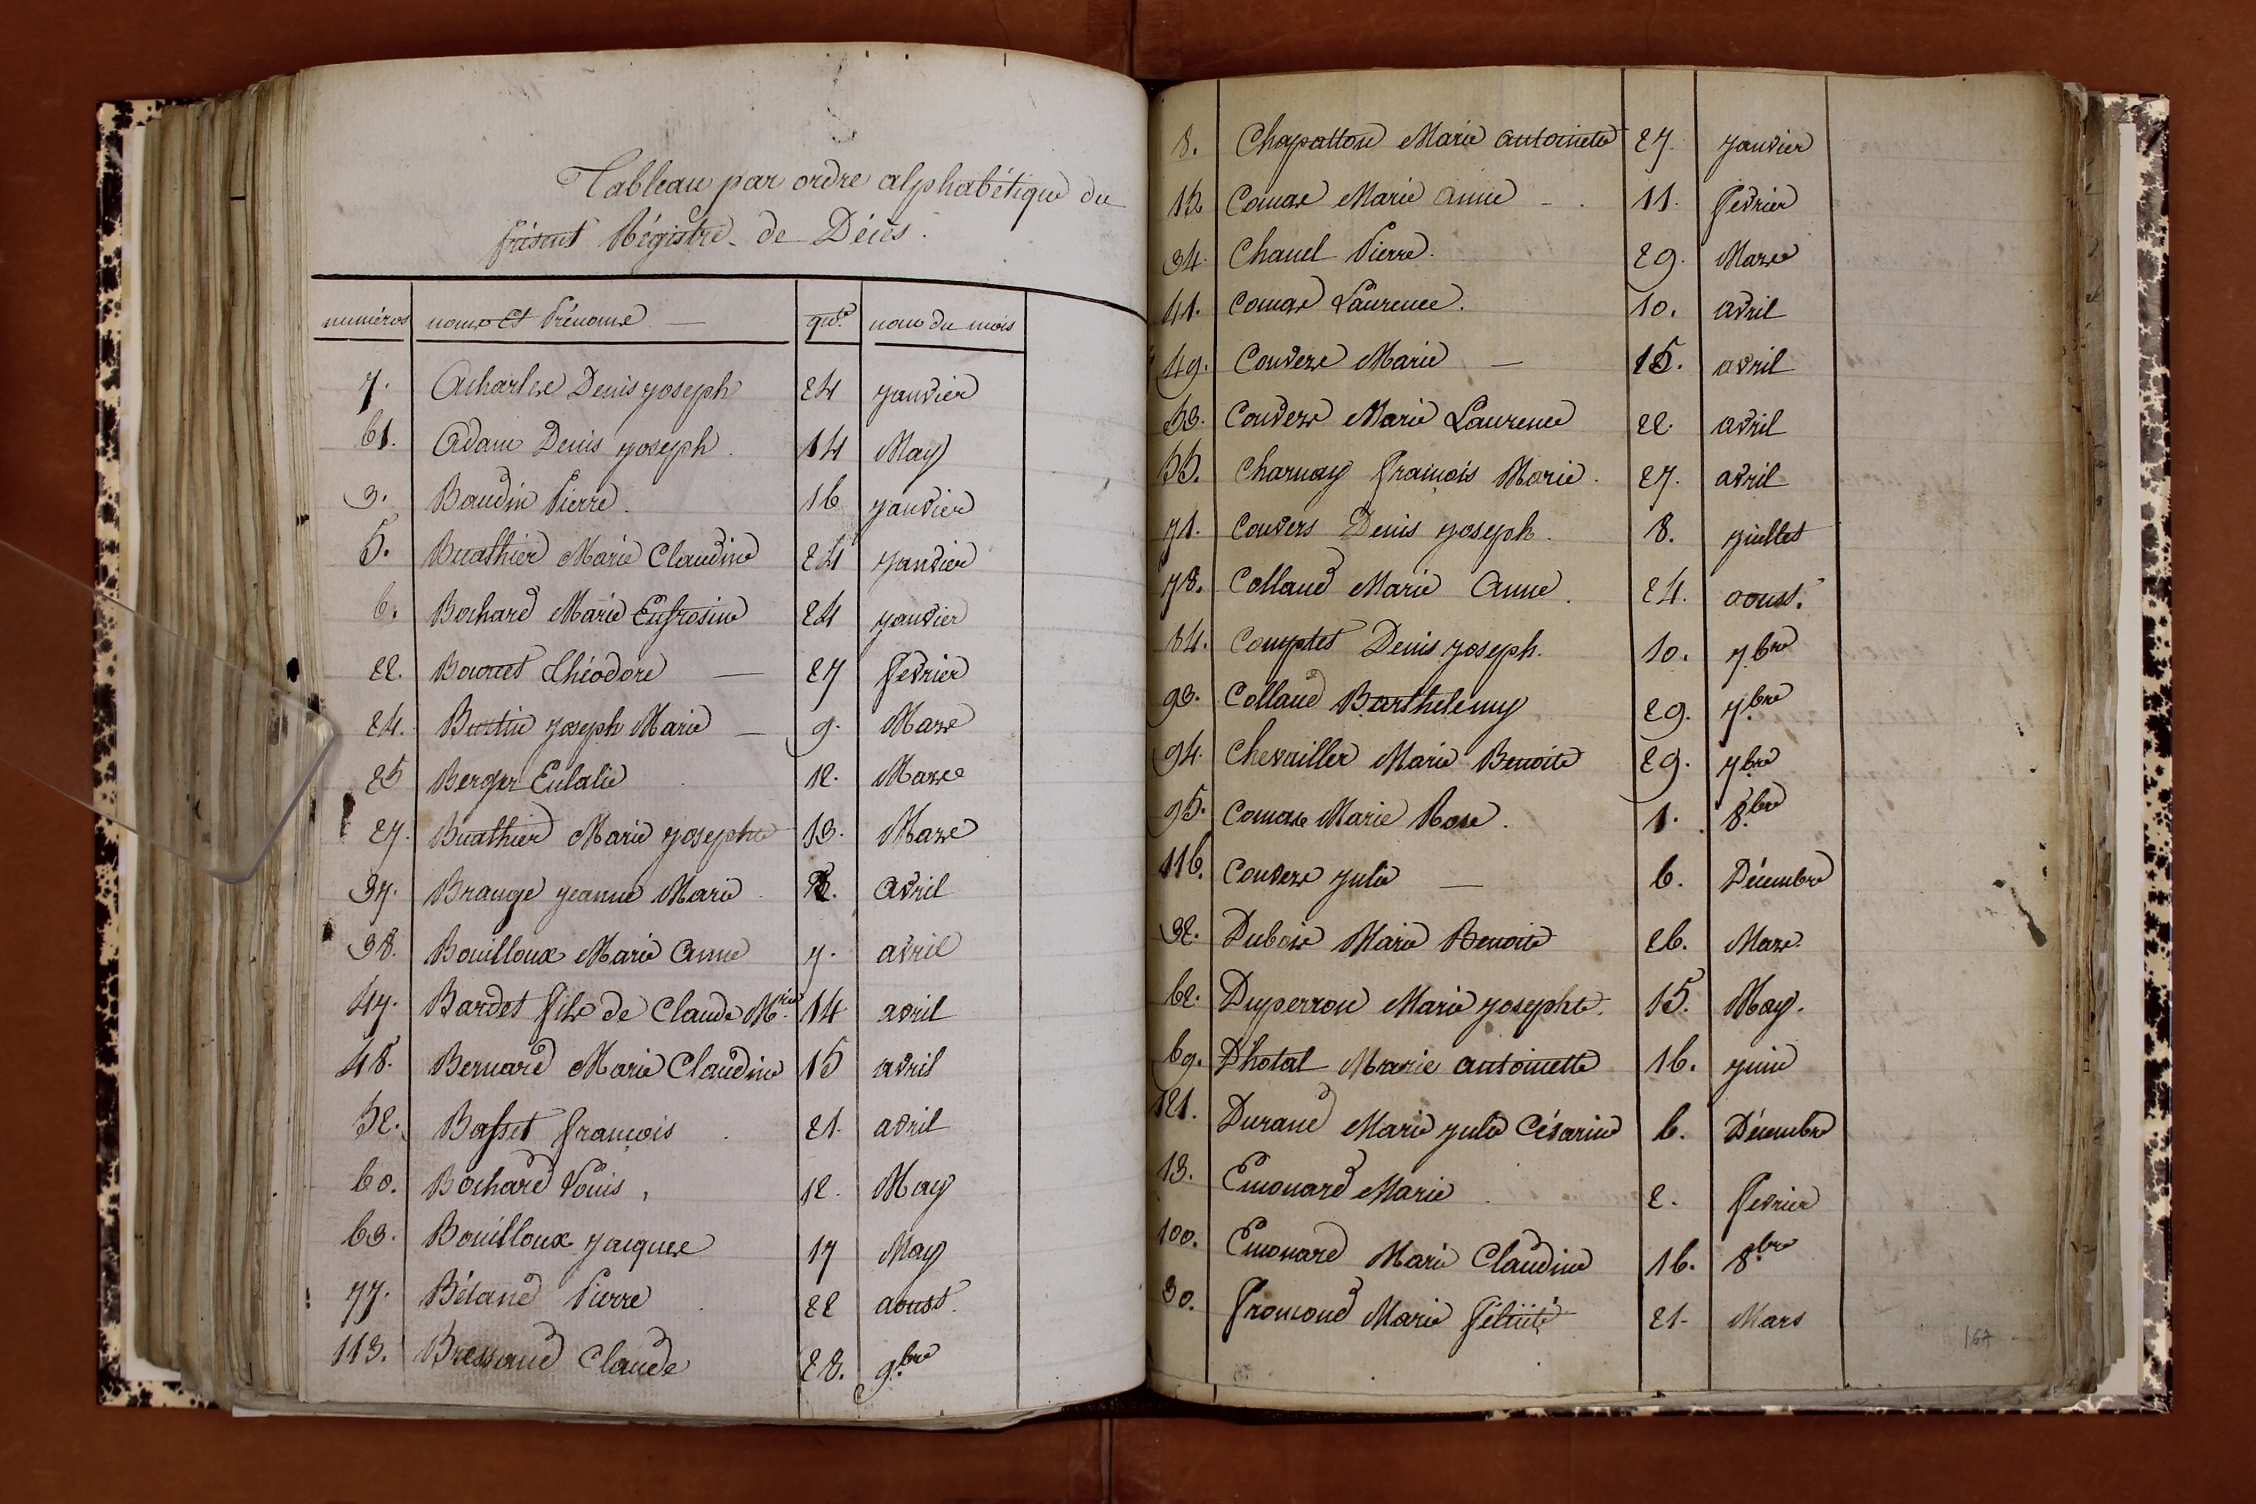 Tableau par ordre alphabétique du
présent Régistre de Décès.
numéros noms Et Prénoms — qu.e nom du mois
7. Acharles Denis joseph 24 janvier
61. Adam Denis joseph. 14 May
3. Baudin Pierre. 16 janvier
5. Buathier Marie Claudine 24 janvier
6. Bochard Marie Eufrosine 24 janvier
22. Bournet Théodore — 27 fevrier
24. Burtin joseph Marie — 9. Mars
25 Berger Eulalie 12. Mars
27. Buathier Marie josephe 13. Mars
37. Brange jeanne Marie. 2. avril
38. Bouilloux Marie Anne 7. avril
47. Bardet fils de Claude M.rie 14 avril
48. Bernard Marie Claudine 15 avril
52. Basset françois. 21. avril
60. Bochard Louis, 12. May
63. Bouilloux jacques 17 May
77. Bétand Pierre. 22 aoust.
113. Bressand Claude 28. 9.bre
8. Chapatton Marie antoinete 27. janvier
12 Comas Marie Anne - . 11. fevrier
34. Chanel Pierre. 29. Mars
41. Comas Laurence. 10. avril
49. Convers Marie — 15. avril
53. Convers Marie Laurence 22. avril
55. Charnay françois Marie. 27. avril
71. Convers Denis joseph. 8. juillet
78. Colland Marie Anne. 24. aoust.
84. Comptet Denis joseph. 10. 7.bre
93. Colland Barthelemy 29. 7.bre
94. Chevailler Marie Benoite 29. 7bre
95. Comas Marie Rose. 1. 8.bre
116. Convers julie — 6. Décembre
32. Dubois Marie Benoite 26. Mars.
62. Duperron Marie josephe. 15. May.
69. Dhotal Marie antoinette 16. juin
121. Durand Marie julie Césarine 6. Décembre
13. Emonard Marie. 2. fevrier
100. Emonard Marie Claudine 16. 8.bre
30. fromond Marie félicité 21. Mars